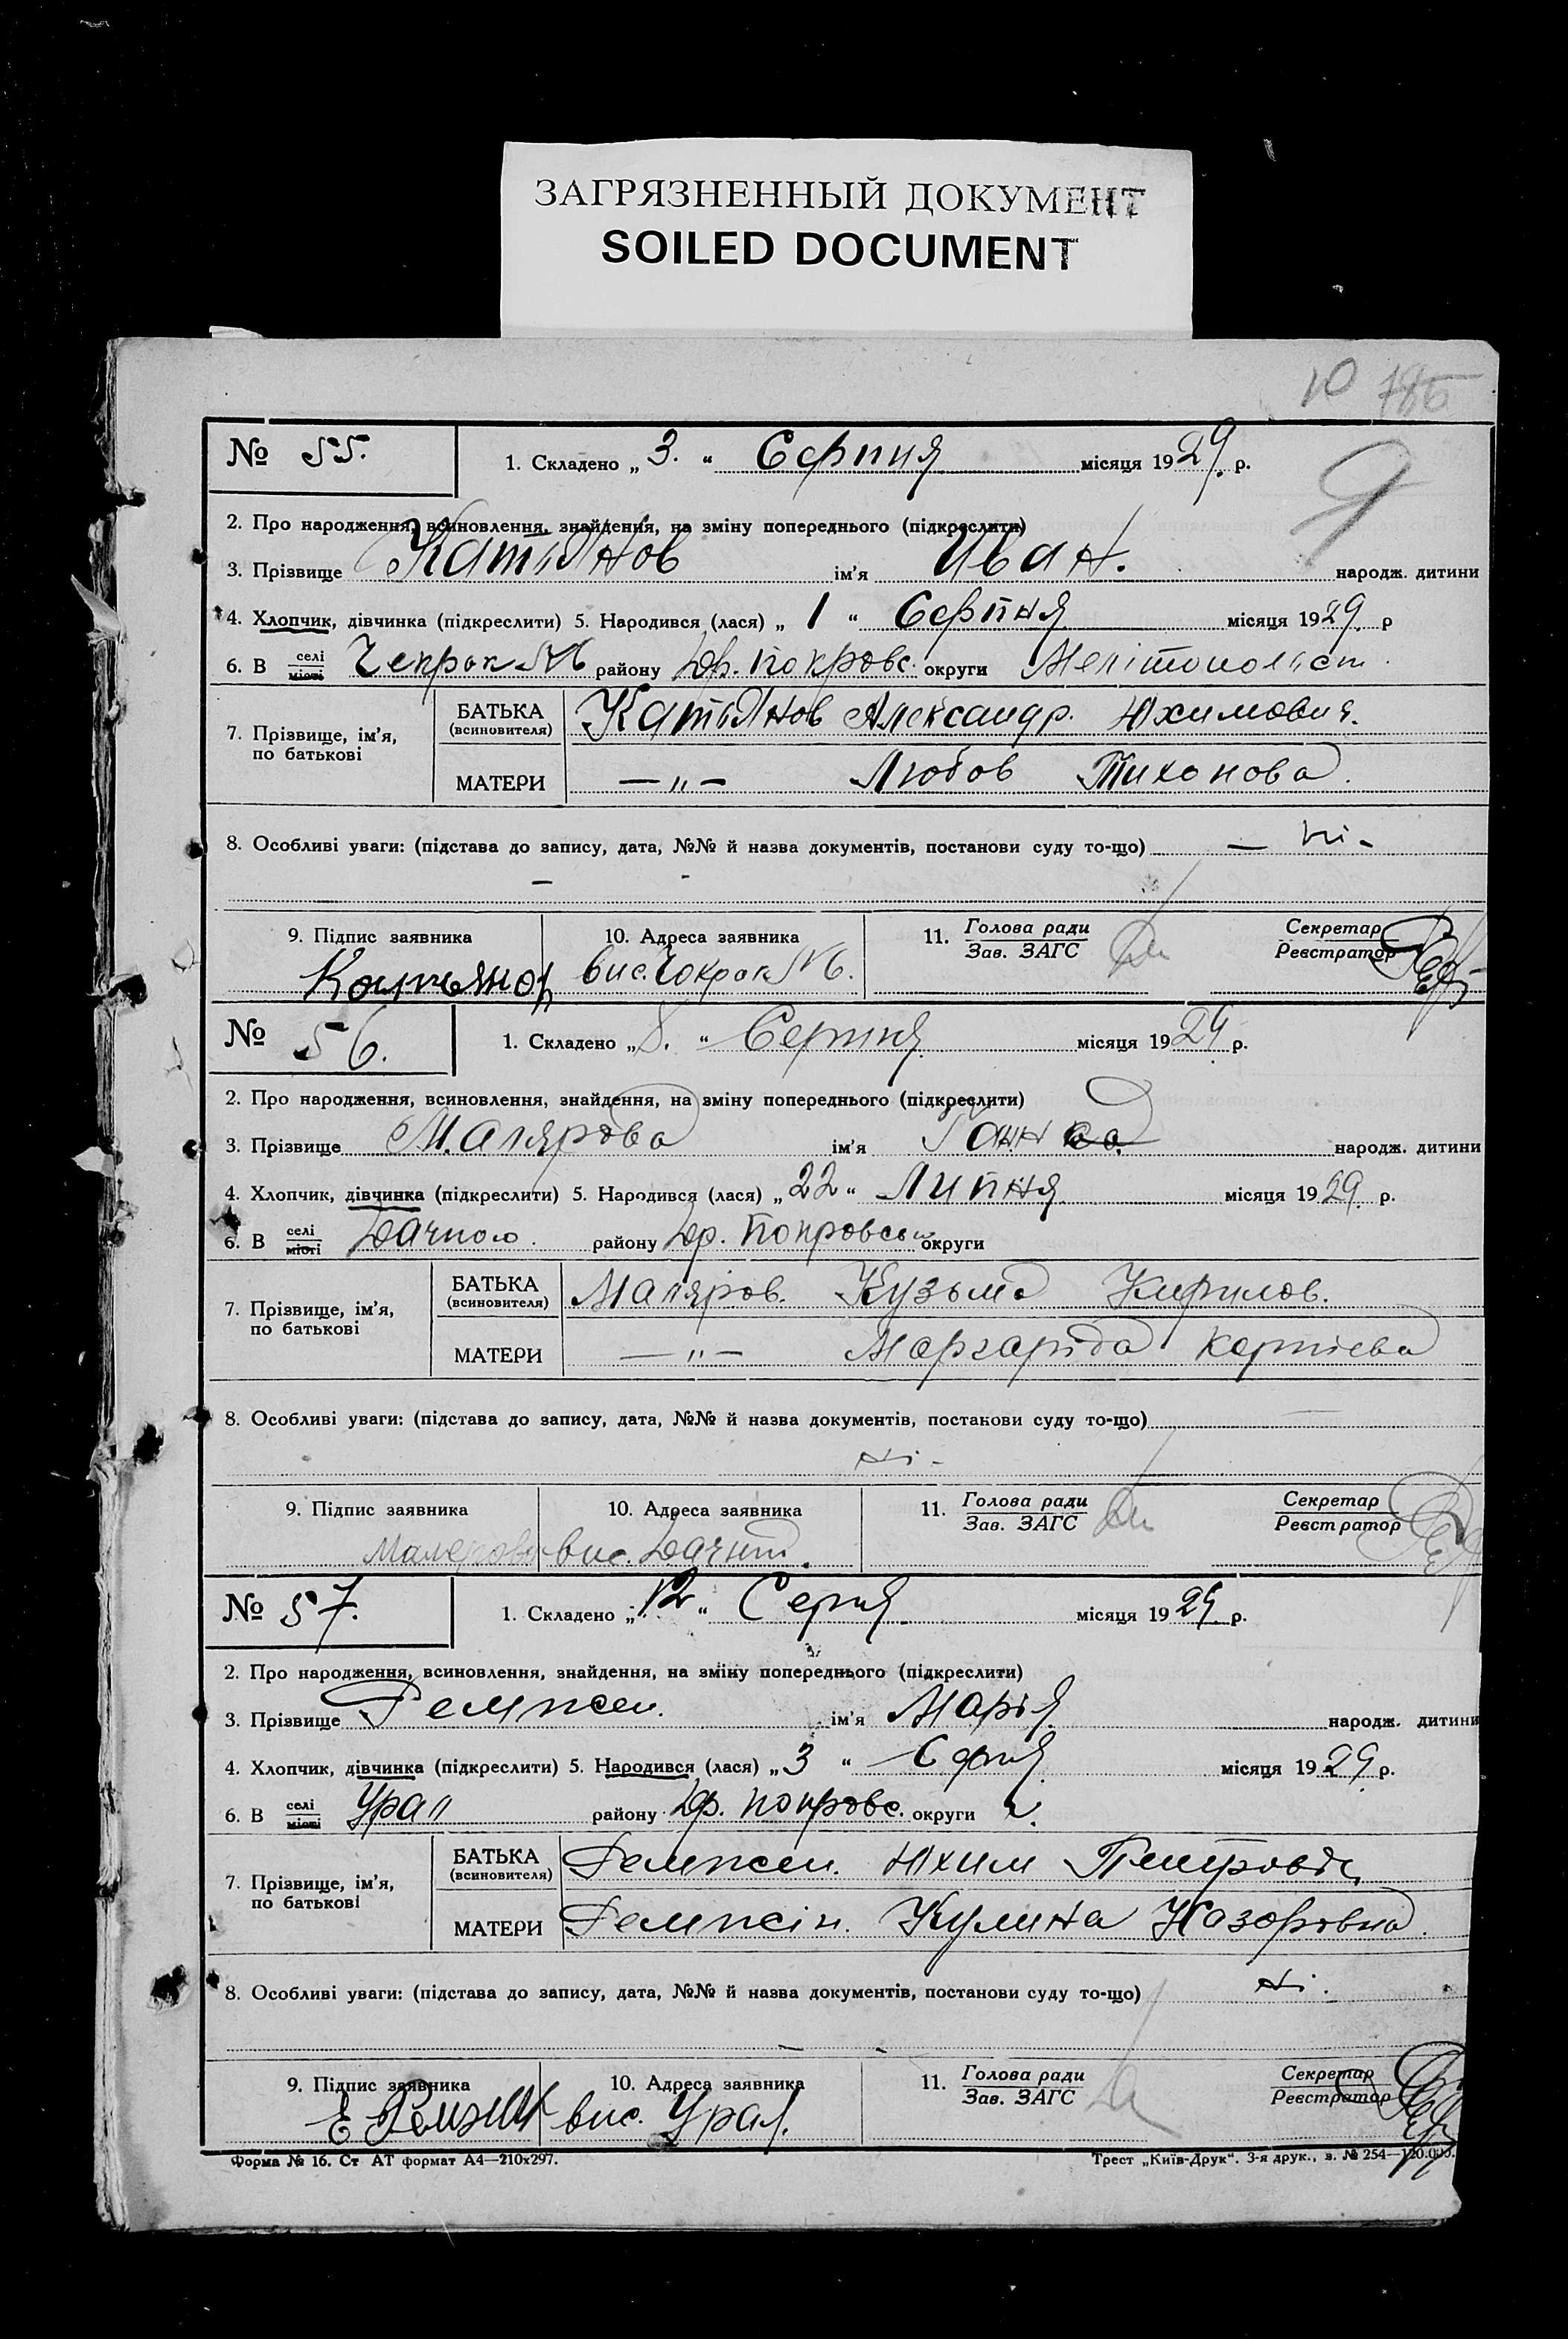 ЗАГРЯЗНЕННЫЙ ДОКУМЕНТ
SOILED DOCUMENT
10
№ 55. 1. Складено „ 3. “ Серпня місяця 1929. р.
2. Про народження, всиновлення, знайдення, на зміну попереднього (підкреслити)
3. Прізвище Катьянов ім'я Иван. народж. дитини
4. Хлопчик, дівчинка (підкреслити) 5. Народився (лася) „ 1 “ Серпня місяця 1929. р
6. В селі місті Чекрак №6 району Др. Покровс. округи Мелітопольст.
7. Прізвище, ім'я, по батькові
БАТЬКА (всиновителя) Катьянов Александр. Юхимович.
МАТЕРИ — „ — Любов Тихонова.
8. Особливі уваги: (підстава до запису, дата, №№ й назва документів, постанови суду то-що) — ні -
9. Підпис заявника 10. Адреса заявника 11. Голова ради Зав. ЗАГС Секретар Реєстратор
Катьянов вис. Чокрак №6.
№ 56. 1. Складено „ 8. “ Серпня місяця 1929 р.
2. Про народження, всиновлення, знайдення, на зміну попереднього (підкреслити)
3. Прізвище Малярова ім'я Ганна народж. дитини
4. Хлопчик, дівчинка (підкреслити) 5. Народився (лася) „ 22 “ Липня місяця 1929. р.
6. В селі місті Дачною. району Др. Покровськ округи
7. Прізвище, ім'я, по батькові
БАТЬКА (всиновителя) Маляров. Кузьма Кирилов.
МАТЕРИ — „ — Маргаріда Карпієва
8. Особливі уваги: (підстава до запису, дата, №№ й назва документів, постанови суду то-що)
ні -
9. Підпис заявника 10. Адреса заявника 11. Голова ради Зав. ЗАГС Секретар Реєстратор
вис.
№ 57. 1. Складено „ 12 “ Серпня місяця 1929 р.
2. Про народження, всиновлення, знайдення, на зміну попереднього (підкреслити)
3. Прізвище ім'я Марія народж. дитини
4. Хлопчик, дівчинка (підкреслити) 5. Народився (лася) „ 3 “ Серпня місяця 1929. р.
6. В селі місті Урал району Др. Покровс. округи
7. Прізвище, ім'я, по батькові
БАТЬКА (всиновителя) Юхим Петровіч
МАТЕРИ Кулина Назоровна.
8. Особливі уваги: (підстава до запису, дата, №№ й назва документів, постанови суду то-що) ні.
9. Підпис заявника 10. Адреса заявника 11. Голова ради Зав. ЗАГС Секретар Реєстратор
вис. Урал.
Форма № 16. Ст АТ формат А4—210х297. Трест „Київ-Друк“. 3-я друк., з. № 254—120.000.